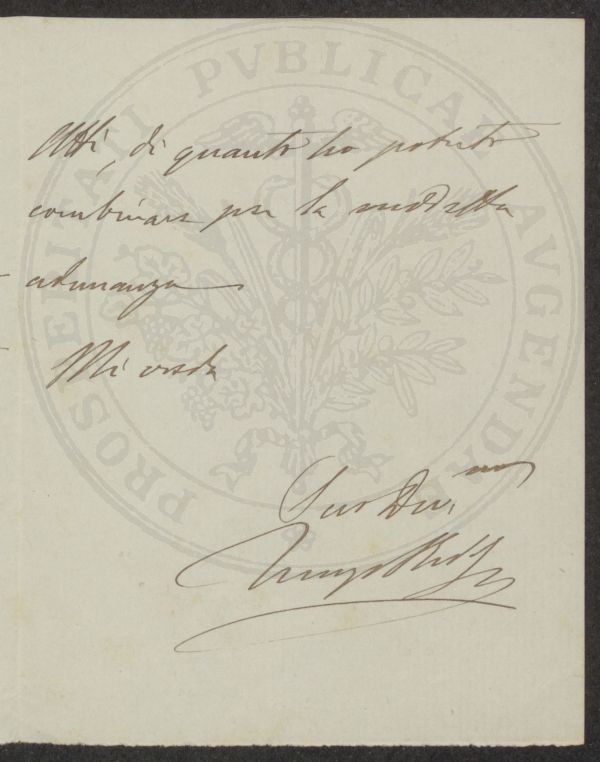 PROSPERITATI PVBLICAE AVGENDAE
Atti, di quanto ho potuto
combinare per la suddetta
adunanza
Mi creda
Suo Dev.mo